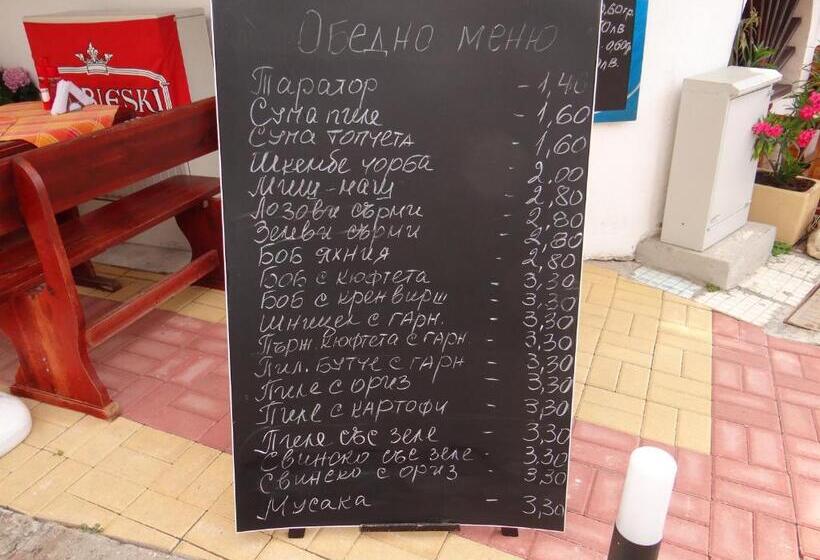 Обедно меню
Таратор - 1,40
Супа пиле - 1,60
Супа топчета - 1,60
Шкембе чорба - 2.00
Миш-маш - 2,80
Лозови сърми - 2,80
Зелеви сърми - 2,80
Боб яхния - 2,80
Боб с кюфтета - 3,30
Боб с кренвирш - 3,30
Шницел с гарн. - 3,30
Пърж. кюфтета с гарн - 3,30
Пил. бутче с гарн - 3,30
Пиле с ориз - 3,30
Пиле с картофи - 3,30
Пиле със зеле - 3,30
Свинско със зеле - 3,30
Свинско с ориз - 3,30
Мусака - 3,30
0,60гр.
лв
- 0,60гр
лв.